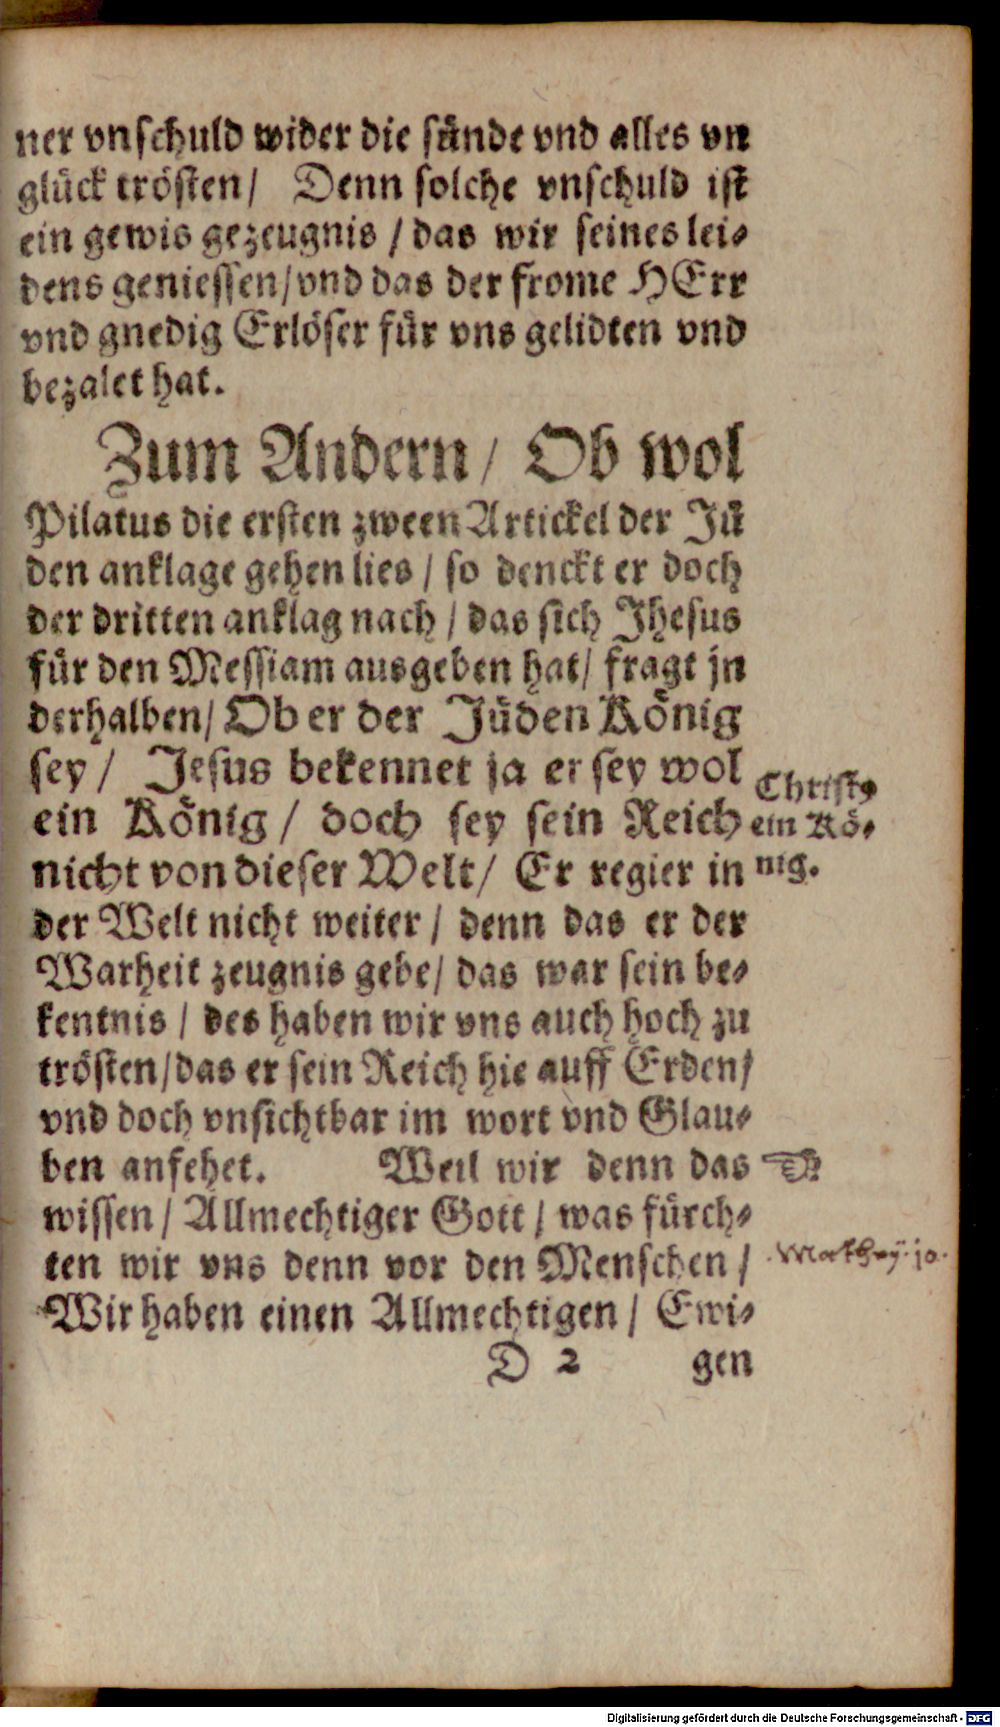 ner vnschuld wider die sünde vnd alles vn
glück trösten/ Denn solche vnschuld ist
ein gewis gezeugnis / das wir seines lei⸗
dens geniessen/vnd das der frome HErr
vnd gnedig Erlöser für vns gelidten vnd
bezalet hat.
Zum Andern / Ob wol
Pilatus die ersten zween Artickel der Jü
den anklage gehen lies / so denckt er doch
der dritten anklag nach / das sich Jhesus
für den Messiam ausgeben hat/ fragt jn
derhalben/ Ob er der Jüden König
sey / Jesus bekennet ja er sey wol
ein König / doch sey sein Reich
nicht von dieser Welt/ Er regier in
der Welt nicht weiter / denn das er der
Warheit zeugnis gebe/ das war sein be⸗
kentnis / des haben wir vns auch hoch zu
trösten/das er sein Reich hie auff Erden/
vnd doch vnsichtbar im wort vnd Glau⸗
ben anfehet. Weil wir denn das
wissen / Allmechtiger Gott / was fürch⸗
ten wir vns denn vor den Menschen /
Wir haben einen Allmechtigen / Ewi⸗
D 2 gen
Christꝰ
ein Kö⸗
nig.
Mathey. jo.
Digitalisierung gefördert durch die Deutsche Forschungsgemeinschaft - DFG